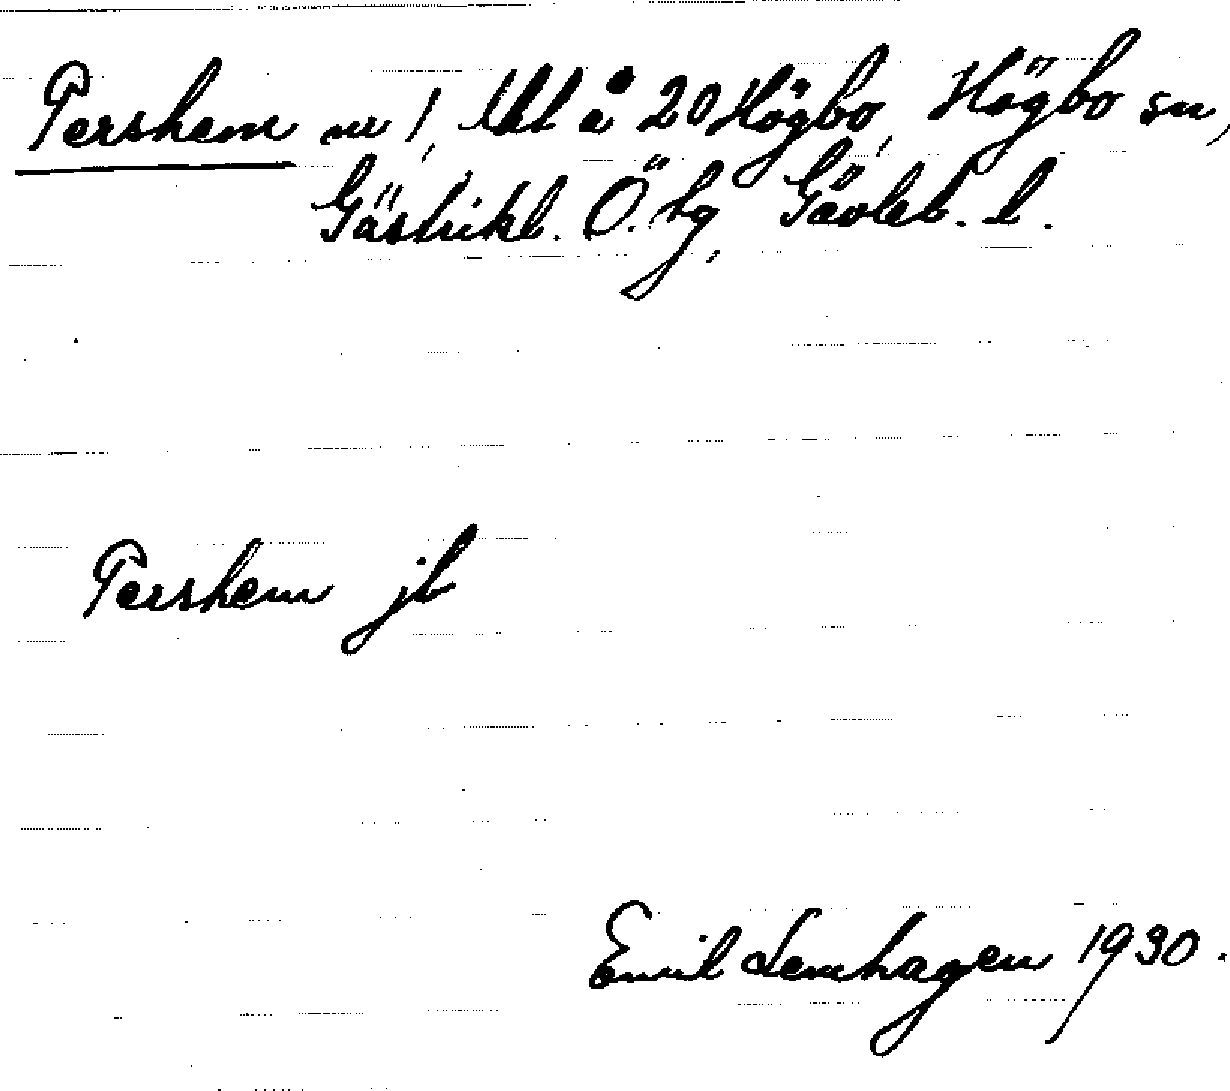 Pershem nr 1, lht å 20 Högbo, Högbo sn,
Gästrikl. Ö. hg, Gävleb. l.
Pershem jb
Emil Lemhagen 1930.